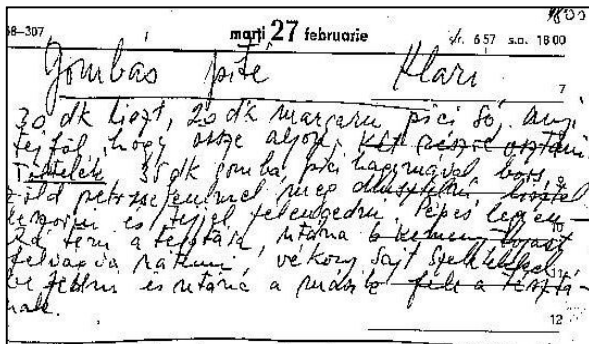 1800
58-307 marți 27 februarie s/r. 6 57 s.a. 18 00
Gombás pite Klári
7
30 dk liszt, 20 dk margarin pici só, annyi
tejföl, hogy össze álljon, két részre osztani
Töltelék 35 dk gomba, pici hagymával bors,
zöld petrezselyemmel meg liszttel
és tejjel felengedni. Pépes legyen
10
Rá tenni a tésztára, utána b kemény tojást
felvágva rátenni, vékony sajt szeletekkel
be fedni és utána a másik fele a tésztá-
nak.
12